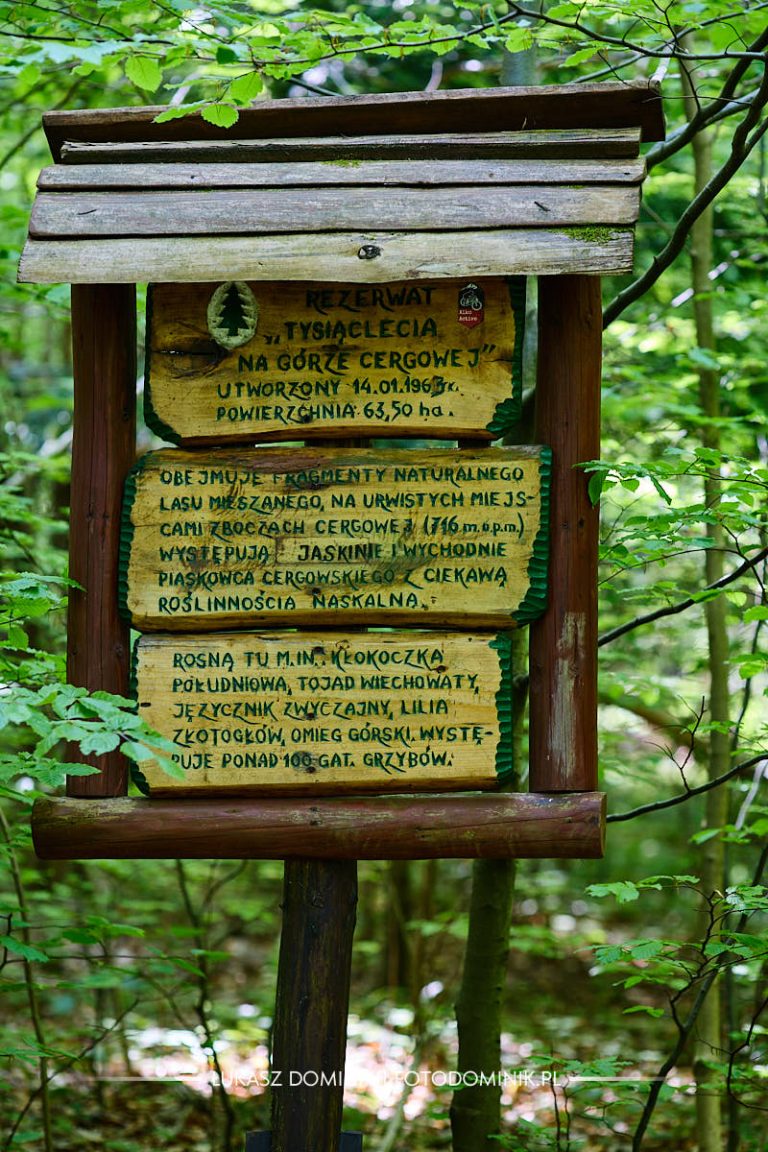 REZERWAT
„TYSIĄCLECIA
NA GÓRZE CERGOWEJ”
UTWORZONY 14.01.1963r.
POWIERZCHNIA 63,50 ha.
OBEJMUJE FRAGMENTY NATURALNEGO
LASU MIESZANEGO, NA URWISTYCH MIEJS-
CAMI ZBOCZACH CERGOWEJ (716 m.n.p.m.)
WYSTĘPUJĄ JASKINIE I WYCHODNIE
PIASKOWCA CERGOWSKIEGO Z CIEKAWĄ
ROŚLINNOŚCIĄ NASKALNĄ.
ROSNĄ TU M.IN. KŁOKOCZKA
POŁUDNIOWA, TOJAD WIECHOWATY,
JĘZYCZNIK ZWYCZAJNY, LILIA
ZŁOTOGŁÓW, OMIEG GÓRSKI. WYSTĘ-
PUJE PONAD 100 GAT. GRZYBÓW.
Active
ŁUKASZ FOTODOMINIK.PL